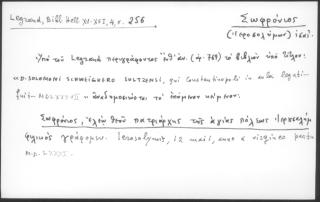 Legrand, Bibl Hell XV-XVI, 4, σ. 256
Σωφρόνιος,
(Ἱεροσολύμων) ἐπί.
Ὑπὸ τοῦ Legrand περιγράφοντος (4. 769) τὸ βιβλίον ὑπὸ τίτλον:
M.D. SOLOMONI SCHWEIGKERO SULTZENSI, qui Constantinopoli in aula legati-
ἀναδημοσιεύεται τὸ ἑπόμενον κείμενον:
Σωφρόνιος, ἐλέῳ θεοῦ πατριάρχης τῆς ἁγίας πόλεως Ἱερουσαλὴμ
γράφομεν. Ierosolymis, 12 maii, anno a virgineo partu
M.D.LXXXI.